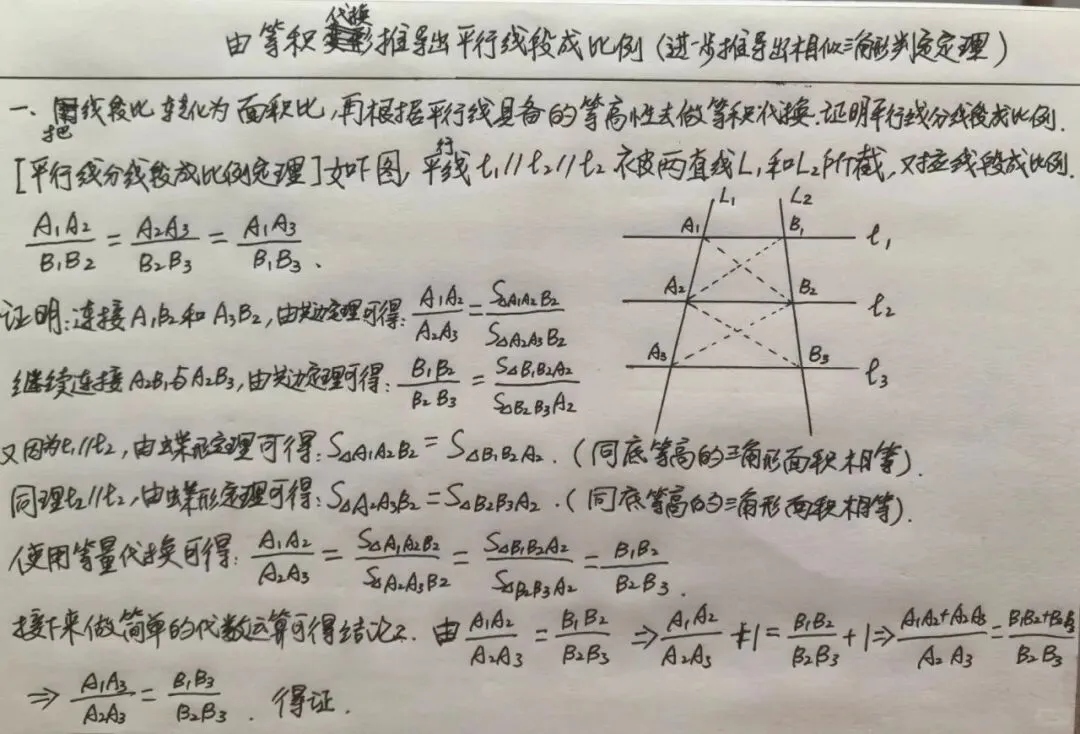 由等积代换推导出平行线段成比例(进一步推导出相似三角形判定定理)
一、把线段比转化为面积比,再根据平行线具备的等高性去做等积代换.证明平行线分线段成比例.
[平行线分线段成比例定理]如下图,平行线t₁//t₂//t₂被两直线L₁和L₂所截,对应线段成比例.
A₁A₂/B₁B₂ = A₂A₃/B₂B₃ = A₁A₃/B₁B₃.
L₁ L₂
A₁ B₁ ℓ₁
A₂ B₂ ℓ₂
A₃ B₃ ℓ₃
证明:连接A₁B₂和A₃B₂,由共边定理可得: A₁A₂/A₂A₃ = S△A₁A₂B₂/S△A₂A₃B₂
继续连接A₂B₁与A₂B₃,由共边定理可得: B₁B₂/B₂B₃ = S△B₁B₂A₂/S△B₂B₃A₂
又因为t₁//t₂,由蝶形定理可得:S△A₁A₂B₂=S△B₁B₂A₂.(同底等高的三角形面积相等).
同理t₂//t₂,由蝶形定理可得:S△A₂A₃B₂=S△B₂B₃A₂.(同底等高的三角形面积相等).
使用等量代换可得: A₁A₂/A₂A₃ = S△A₁A₂B₂/S△A₂A₃B₂ = S△B₁B₂A₂/S△B₂B₃A₂ = B₁B₂/B₂B₃.
接下来做简单的代数运算可得结论2. 由 A₁A₂/A₂A₃ = B₁B₂/B₂B₃ ⇒ A₁A₂/A₂A₃ +1 = B₁B₂/B₂B₃ +1 ⇒ (A₁A₂+A₂A₃)/A₂A₃ = (B₁B₂+B₂B₃)/B₂B₃
⇒ A₁A₃/A₂A₃ = B₁B₃/B₂B₃. 得证.